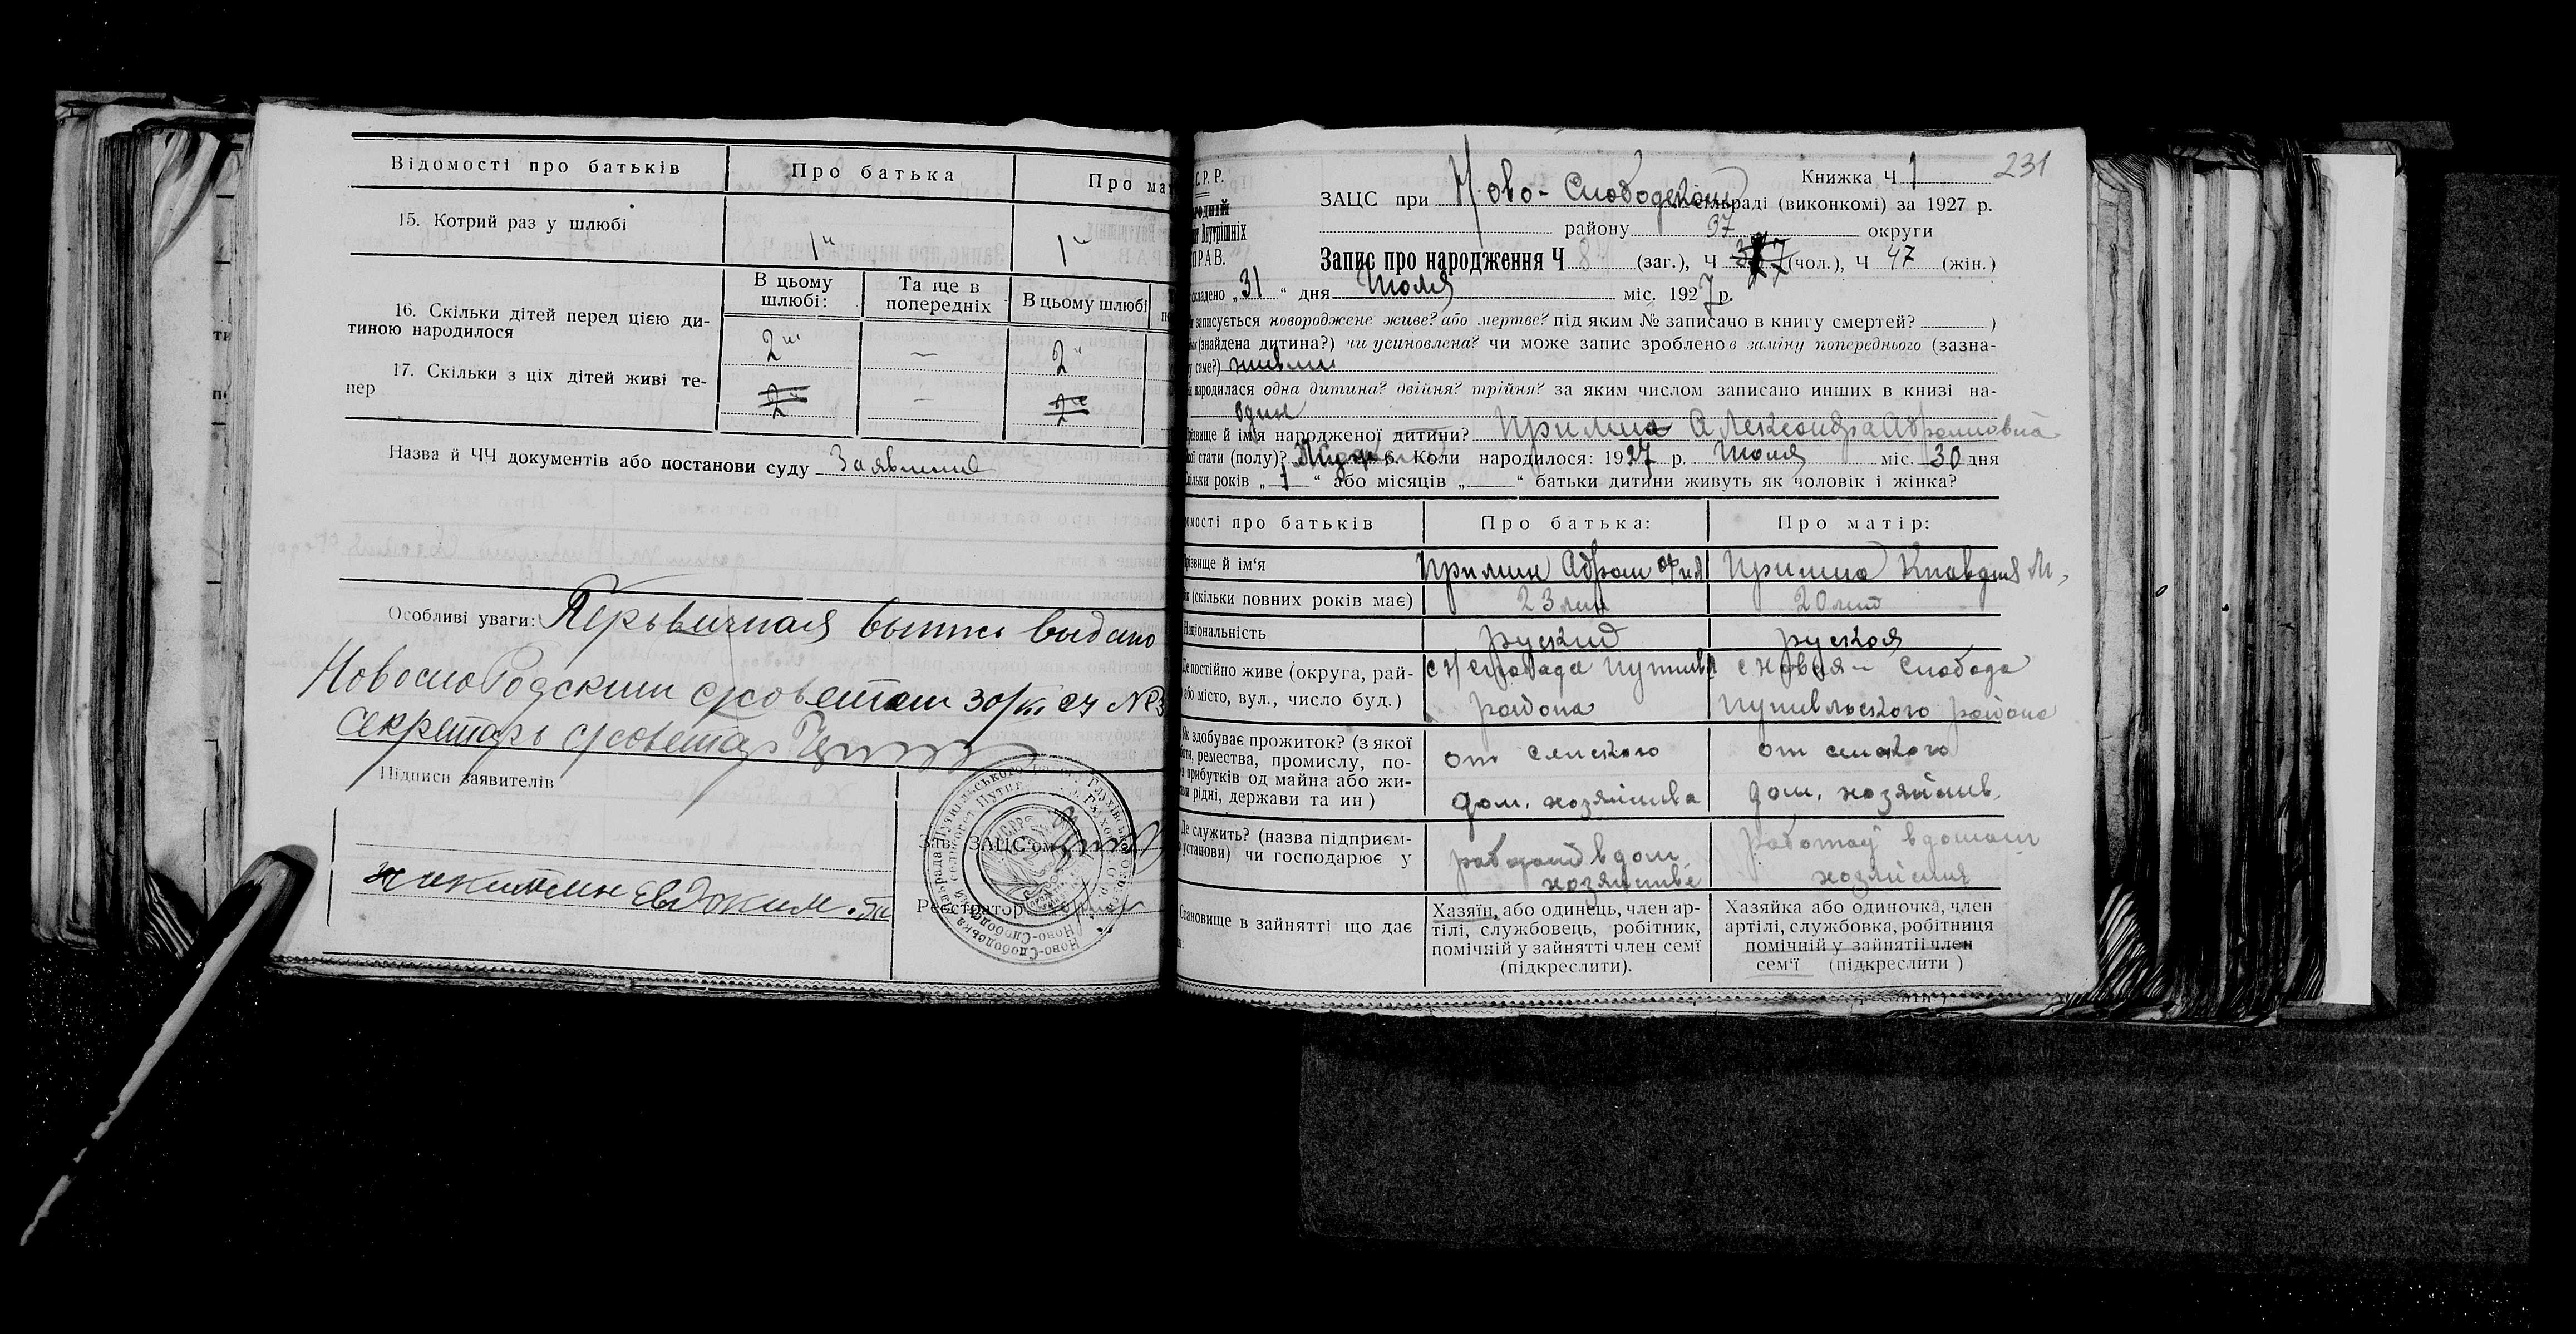 Відомості про батьків
Про батька
Про мат
15. Котрий раз у шлюбі
1й
1й
В цьому шлюбі:
Та ще в попередніх
В цьому шлюбі
16. Скільки дітей перед цією ди-
тиною народилося
2
—
2
17. Скільки з ціх дітей живі те-
пер
2
—
2
Назва й ЧЧ документів або постанови суду Заявление
Особливі уваги: Первичная выпись выдано
Новослободским с/советом 30/
Секретарь с/совета
Підписи заявителів
Никитин Евдоким
Зав. ЗАЦС'ом
Реєстратор
231
С.Р.Р.
Книжка Ч 1
ЗАЦС при Ново-Слободском сільраді (виконкомі) за 1927 р.
району 37 округи
Внутрішніх
ПРАВ.
Запис про народження Ч 84 (заг.), Ч 37 (чол.), Ч 47 (жін.)
складено „31“ дня Июля міс. 1927 р.
записується новороджене живе? або мертве? під яким № записано в книгу смертей? )
(знайдена дитина?) чи усиновлена? чи може запис зроблено в заміну попереднього (зазна-
саме?) живым
народилася одна дитина? двійня? трійня? за яким числом записано инших в книзі на-
один
різвище й ім'я народженої дитини? Прилипа Александра Абрамовна
стати (полу)? Коли народилося: 1927 р. Июля міс. 30 дня
ільки років „1“ або місяців „ “ батьки дитини живуть як чоловік і жінка?
омості про батьків
Про батька:
Про матір:
різвище й ім'я
Клавдия М.
(скільки повних років має)
23 лет
20 лет
Національність
руский
руская
Де постійно живе (округа, рай-
або місто, вул., число буд.)
с Н Слобода Путивл
района
с Новая-Слобода
Путивльского района
Як здобуває прожиток? (з якої
ремества, промислу, по-
прибутків од майна або жи-
рідні, держави та ин)
от сельского
дом. хозяйства
от сельского
дом. хозяйств.
Де служить? (назва підприєм-
установи) чи господарює у
работает в дом.
хозяйстве
работает в домаш
хозяйстве
Становище в зайнятті що дає
Хазяїн, або одинець, член ар-
тілі, службовець, робітник,
помічній у зайнятті член семї
(підкреслити).
Хазяйка або одиночка, член
артілі, службовка, робітниця
помічній у зайнятіі член
сем'ї (підкреслити)